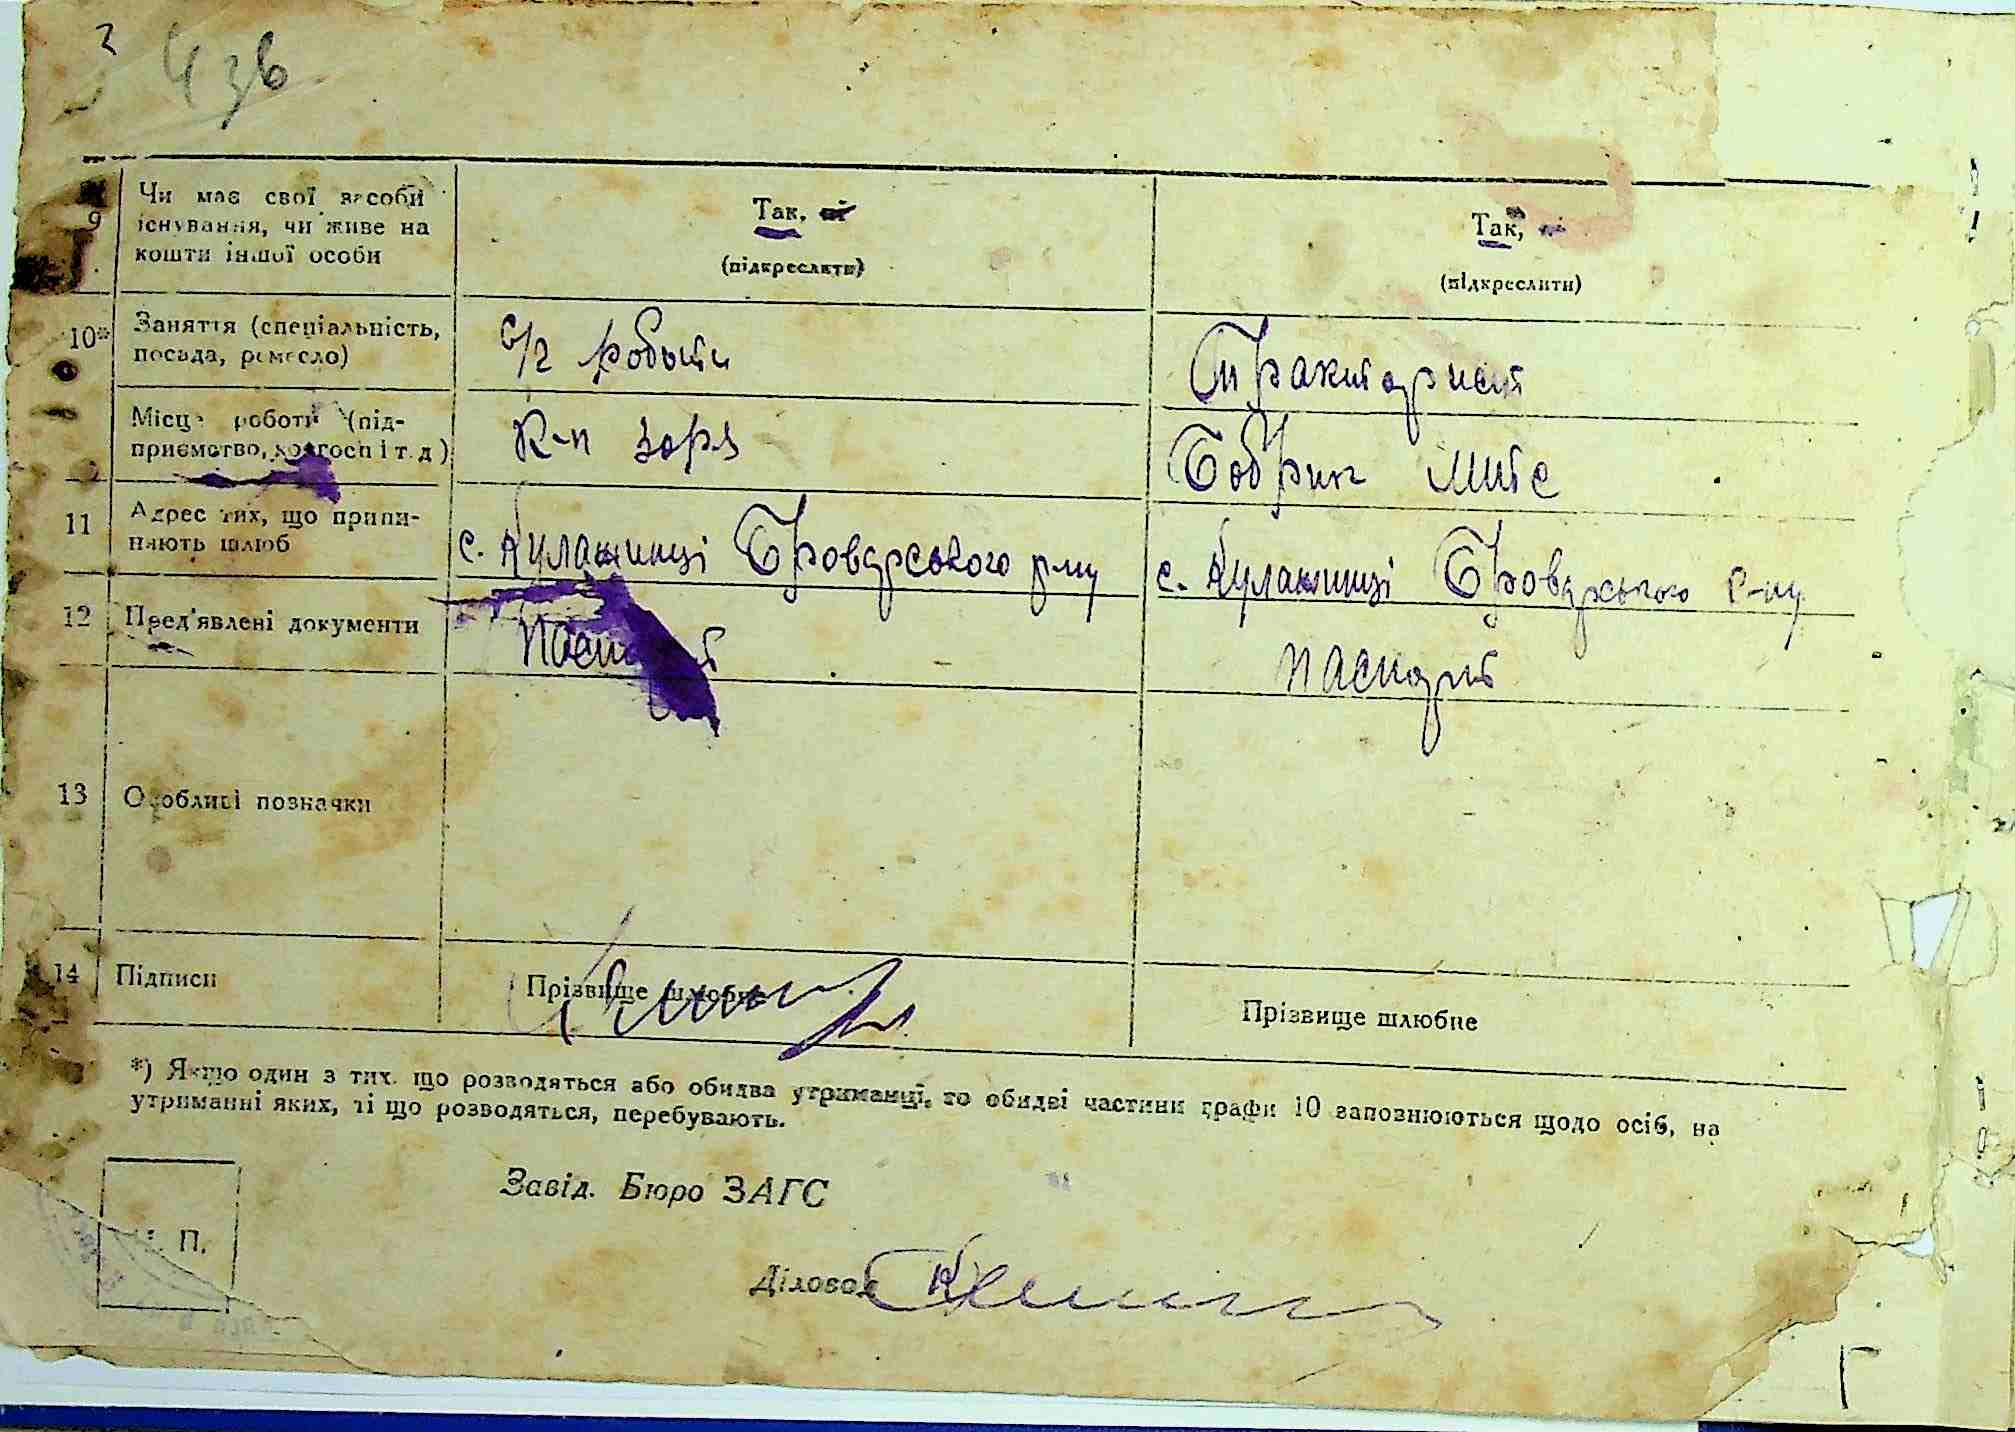 2
4 зв
9 Чи має свої засоби існування, чи живе на кошти іншої особи
Так, ні
(підкреслити)
Так, ні
(підкреслити)
10* Заняття (спеціальність, посада, ремесло)
с/г роботи
Тракторист
Місце роботи (підприємство, колгосп і т. д)
К-п зоря
Бобрик МТС
11 Адрес тих, що припиняють шлюб
с. Кулажинці Броварського р-ну
с. Кулажинці Броварського р-ну
12 Пред'явлені документи
паспорт
паспорт
13 Особливі позначки
14 Підписи
Прізвище шлюбне
Прізвище шлюбне
*) Якщо один з тих, що розводяться або обидва утриманці, то обидві частини графи 10 заповнюються щодо осіб, на
утриманні яких, ті що розводяться, перебувають.
Завід. Бюро ЗАГС
М. П.
Діловод